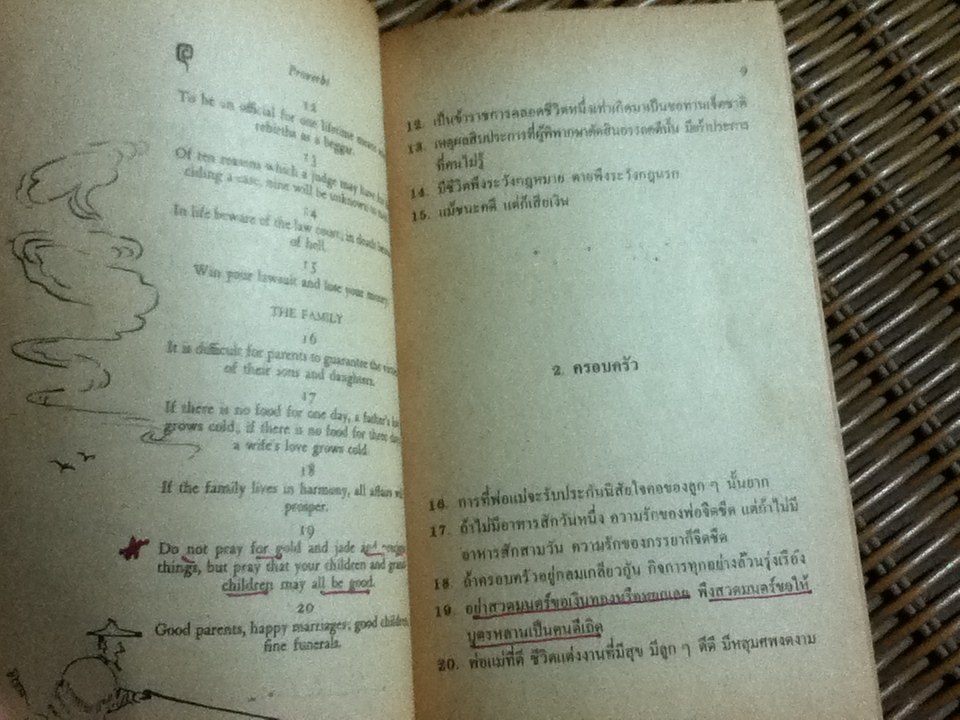 Proverbs
12
To be an official for one lifetime means
rebirths as a beggar.
13
Of ten reasons which a judge may have for
ciding a case, nine will be unknown to
14
In life beware of the law court; in death
of hell.
15
Win your lawsuit and lose your money.
THE FAMILY
16
It is difficult for parents to guarantee the
of their sons and daughters.
17
If there is no food for one day, a father's
grows cold; if there is no food for three
a wife's love grows cold.
18
If the family lives in harmony, all affairs
prosper.
19
Do not pray for gold and jade and
things, but pray that your children and grand
children may all be good.
20
Good parents, happy marriages; good children,
fine funerals.
9
12. เป็นข้าราชการตลอดชีวิตหนึ่งเท่าเกิดมาเป็นขอทานเจ็ดชาติ
13. เหตุผลสิบประการที่ผู้พิพากษาตัดสินอรรถคดีนั้น มีเก้าประการ
ที่คนไม่รู้
14. มีชีวิตพึงระวังกฎหมาย ตายพึงระวังกฎนรก
15. แม้ชนะคดี แต่ก็เสียเงิน
2. ครอบครัว
16. การที่พ่อแม่จะรับประกันนิสัยใจคอของลูก ๆ นั้นยาก
17. ถ้าไม่มีอาหารสักวันหนึ่ง ความรักของพ่อจืดชืด แต่ถ้าไม่มี
อาหารสักสามวัน ความรักของภรรยาก็จืดชืด
18. ถ้าครอบครัวอยู่กลมเกลียวกัน กิจการทุกอย่างล้วนรุ่งเรือง
19. อย่าสวดมนตร์ขอเงินทองหรือหยกเลย พึงสวดมนตร์ขอให้
บุตรหลานเป็นคนดีเถิด
20. พ่อแม่ที่ดี ชีวิตแต่งงานที่มีสุข มีลูก ๆ ดีดี มีหลุมศพงดงาม